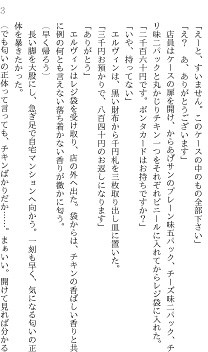 「えーと、すいません。このケースの中のもの全部下さい」
「え？　あ、ありがとうございます」
店員はケースの扉を開け、からあげサンのプレーン味五パック、チーズ味二パック、チ
リ味二パックと丸かじりチキン一つをそれぞれビニールに入れてからレジ袋に入れた。
「二千百六十円です。ポンタカードはお持ちですか」
「いや、持ってない」
「三千円お預かりで、八百四十円のお返しになります」
エルヴィンは、黒い財布から千円札を三枚取り出し皿に置いた。
「ありがとう」
エルヴィンはレジ袋を受け取り、店の外へ出た。袋からは、チキンの香ばしい香り共
に例の何とも言えない落ち着かない香りが微かに匂う。
（早く帰ろう）
長い脚を大股にし、急ぎ足で自宅マンションへ向かう。一刻も早く、気になる匂いの正
体を暴きたかった。
（でも匂いの正体って言っても、チキンばかりだか……。まぁいい。開けて見れば分かる
3